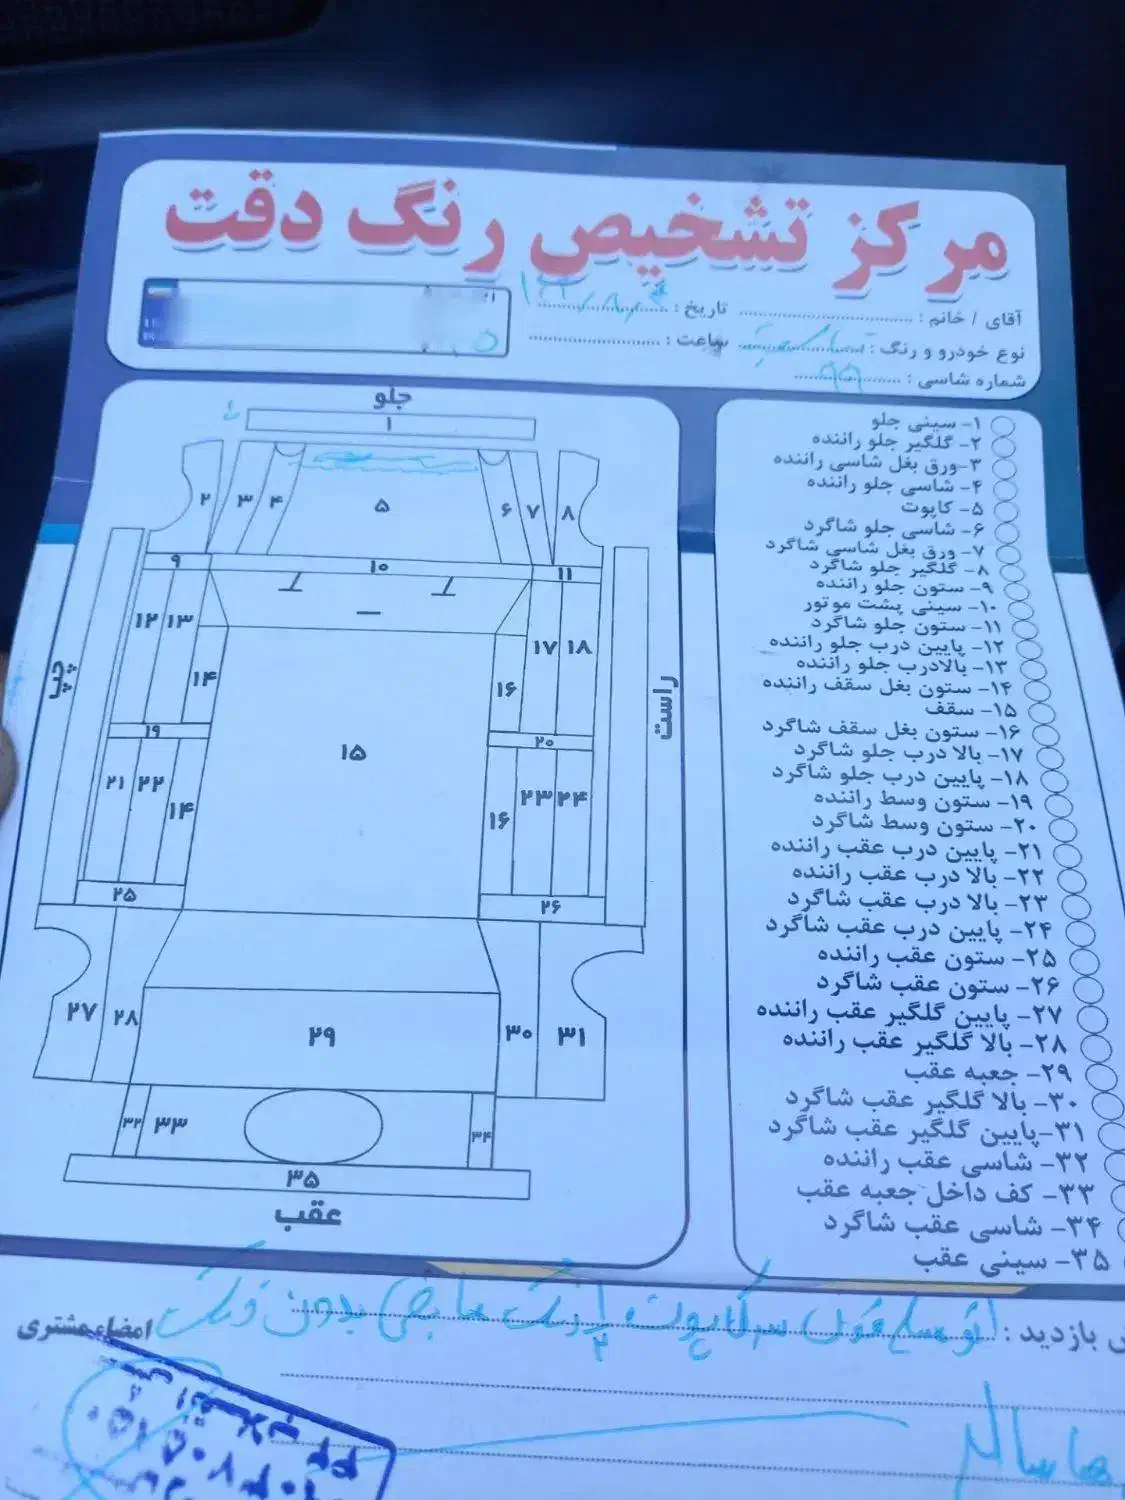 مرکز تشخیص رنگ دقت
آقای / خانم :
تاریخ :
نوع خودرو و رنگ :
ساعت :
شماره شاسی : ۹۹
جلو
۱
۲ ۳ ۴ ۵ ۶ ۷ ۸
۹ ۱۰ ۱۱
۱۲ ۱۳ ۱۴ ۱۵ ۱۶ ۱۷ ۱۸
چپ
راست
۱۹ ۲۰
۲۱ ۲۲ ۱۴ ۱۶ ۲۳ ۲۴
۲۵ ۲۶
۲۷ ۲۸ ۲۹ ۳۰ ۳۱
۳۲ ۳۳ ۳۴
۳۵
عقب
۱- سینی جلو
۲- گلگیر جلو راننده
۳-ورق بغل شاسی راننده
۴- شاسی جلو راننده
۵- کاپوت
۶- شاسی جلو شاگرد
۷- ورق بغل شاسی شاگرد
۸- گلگیر جلو شاگرد
۹- ستون جلو راننده
۱۰- سینی پشت موتور
۱۱- ستون جلو شاگرد
۱۲- پایین درب جلو راننده
۱۳- بالادرب جلو راننده
۱۴- ستون بغل سقف راننده
۱۵- سقف
۱۶- ستون بغل سقف شاگرد
۱۷- بالا درب جلو شاگرد
۱۸- پایین درب جلو شاگرد
۱۹- ستون وسط راننده
۲۰- ستون وسط شاگرد
۲۱- پایین درب عقب راننده
۲۲- بالا درب عقب راننده
۲۳- بالا درب عقب شاگرد
۲۴- پایین درب عقب شاگرد
۲۵- ستون عقب راننده
۲۶- ستون عقب شاگرد
۲۷- پایین گلگیر عقب راننده
۲۸- بالا گلگیر عقب راننده
۲۹- جعبه عقب
۳۰- بالا گلگیر عقب شاگرد
۳۱-پایین گلگیر عقب شاگرد
۳۲- شاسی عقب راننده
۳۳- کف داخل جعبه عقب
۳۴- شاسی عقب شاگرد
۳۵- سینی عقب
بازدید : سرکاپوت بدون رنگ
امضاء مشتری
سالم